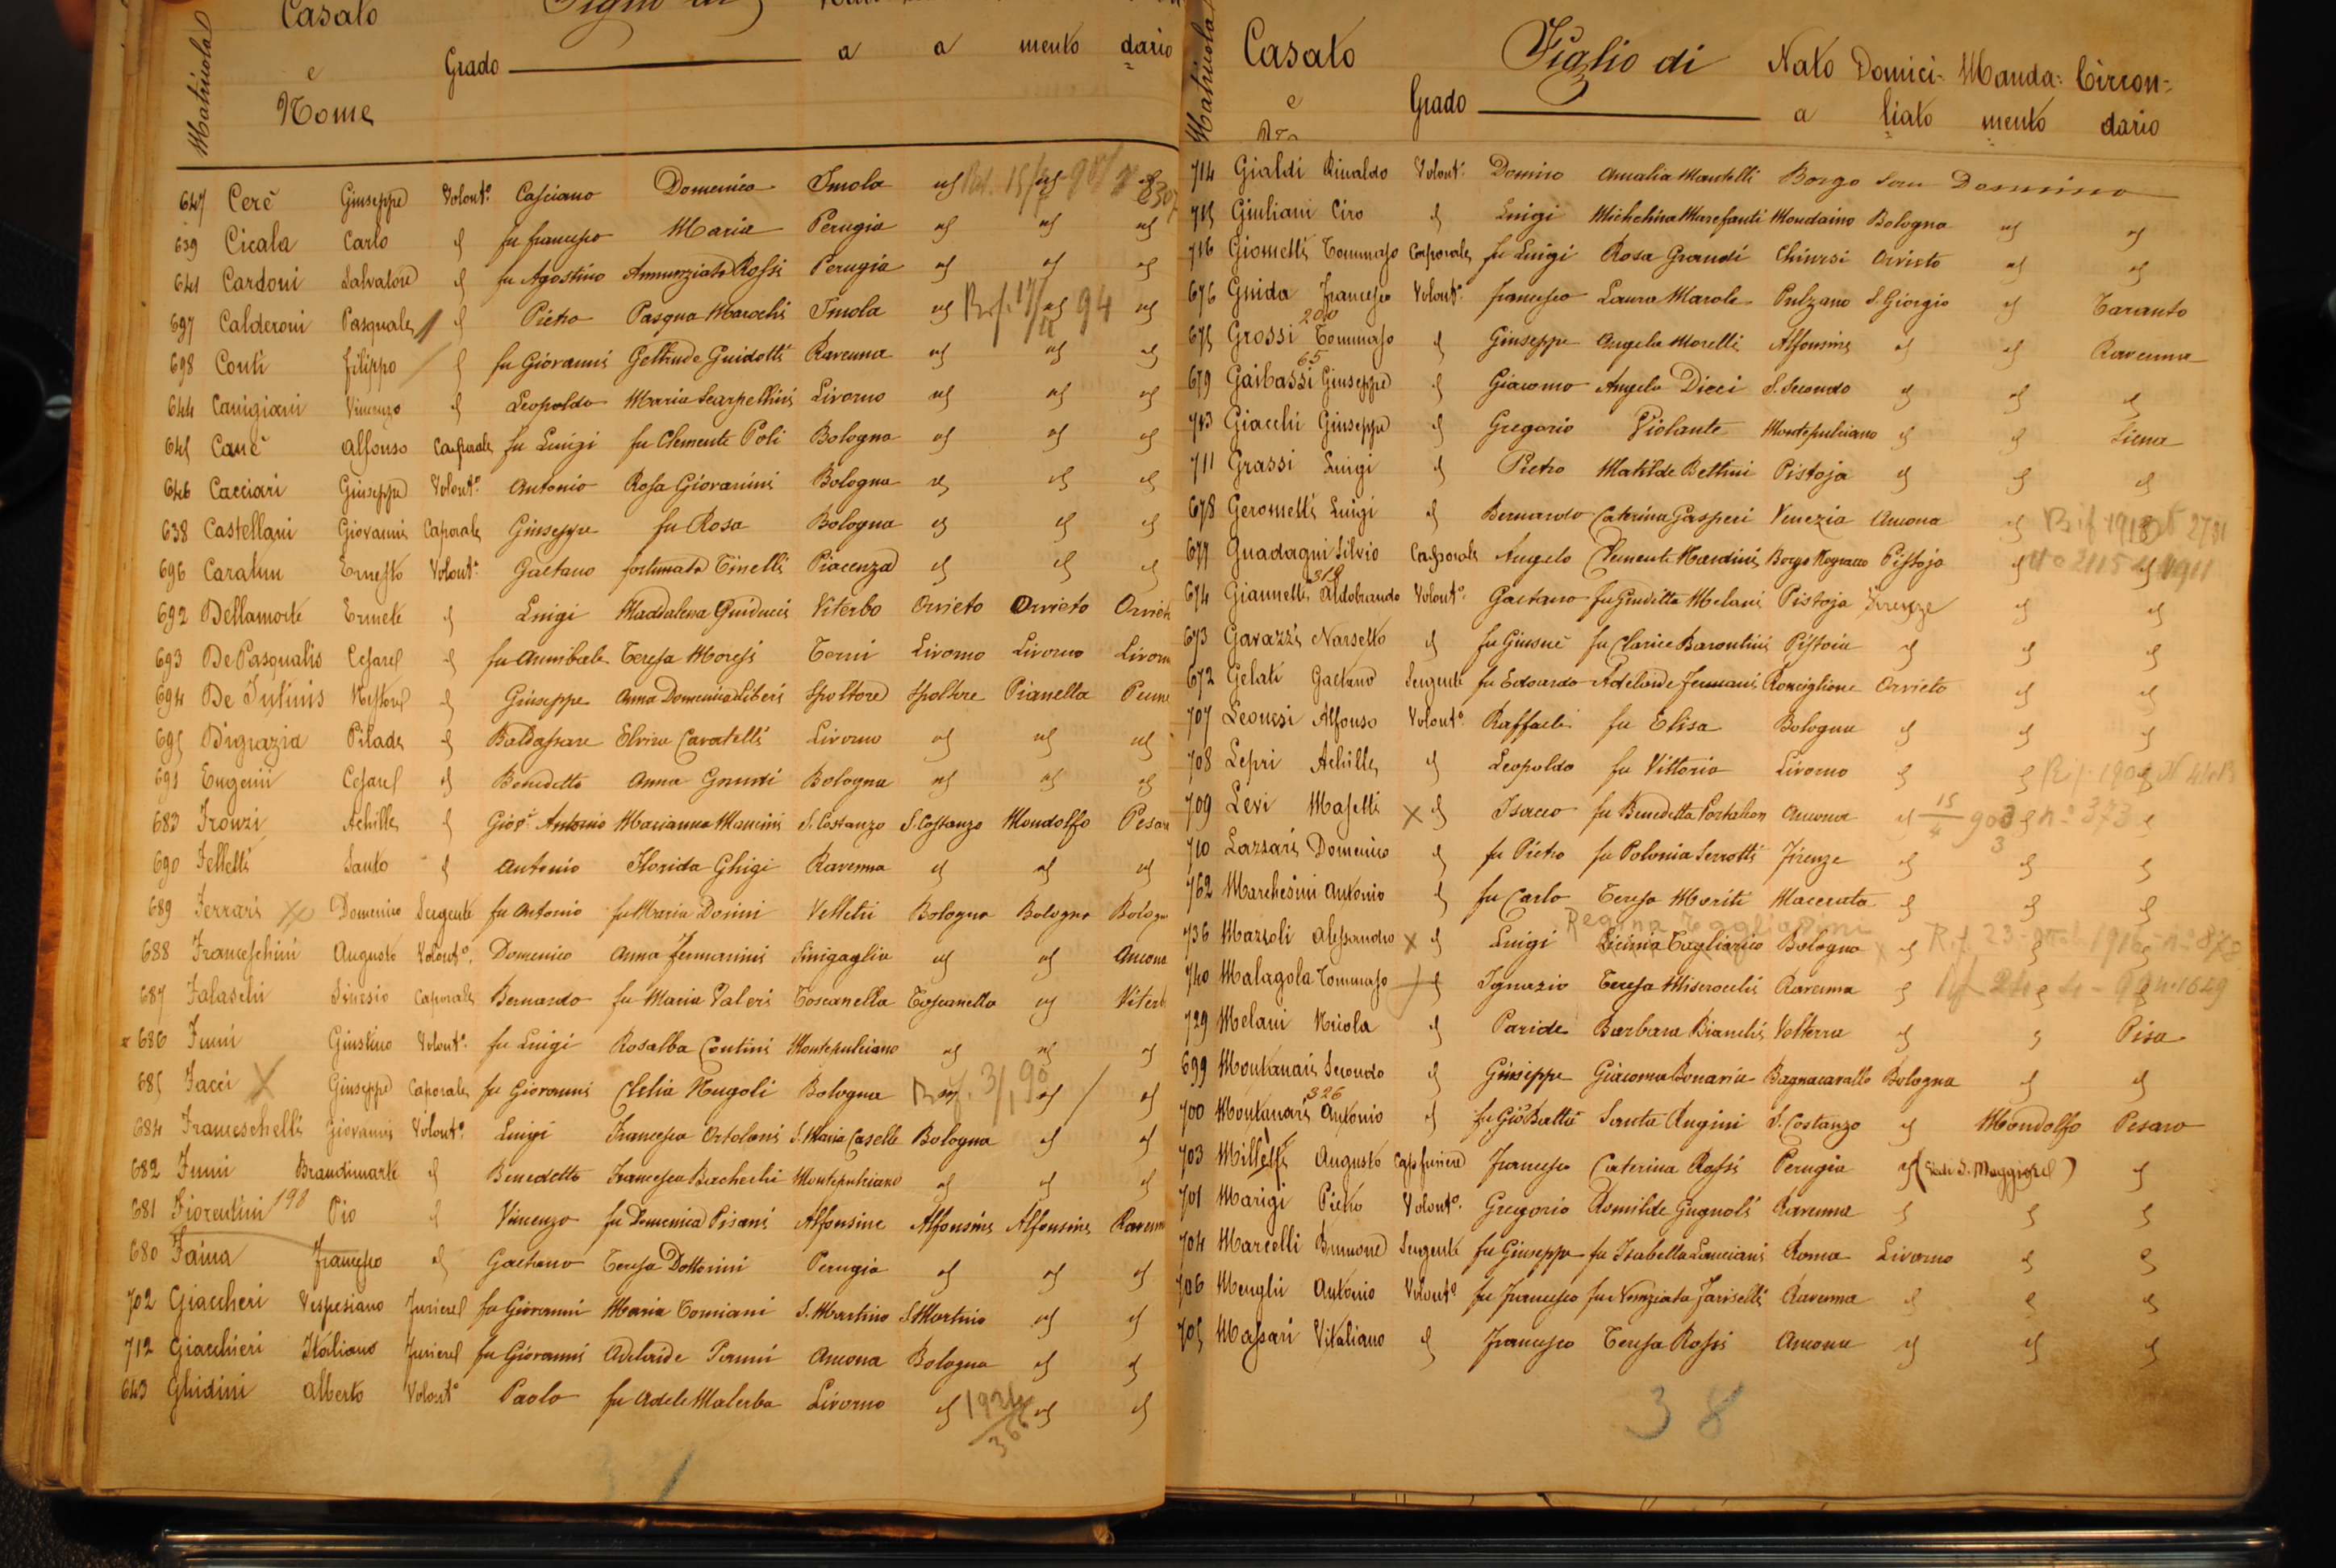 Matricola Casato e Nome Grado Figlio di a a mento dario
647 Cerè Giuseppe Volont.º Casciano Domenica Imola id id id
639 Cicala Carlo id fu Francesco Maria Perugia id id id
641 Cardoni Salvatore id fu Agostino Annunziata Rossi Perugia id id id
697 Calderoni Pasquale id Pietro Pasqua Marochi Imola id Rif. 17/ id 94 id
698 Conti Filippo id fu Giovanni Geltrude Guidotti Ravenna id id id
644 Canigiani Vincenzo id Leopoldo Maria Scarpellini Livorno id id id
645 Canè Alfonso Caporale fu Luigi fu Clemente Poli Bologna id id id
646 Cacciari Giuseppe Volont.º Antonio Rosa Giovanini Bologna id id id
638 Castellani Giovanni Caporale Giuseppe fu Rosa Bologna id id id
696 Ernesto Volont.º Gaetano Fortunata Tinelli Piacenza id id id
692 Dellamorte Ermete id Luigi Maddalena Guiducci Viterbo Orvieto Orvieto Orviet
693 De Pasqualis Cesare id fu Annibale Teresa Moresi Terni Livorno Livorno Livorn
694 De Nestore id Giuseppe Anna Domenica Liberi Spoltore Spoltore Pianella Penne
695 Digrazia Pilade id Baldassare Elvira Caratelli Livorno id id id
691 Eugenii Cesare id Benedetto Anna Bologna id id id
683 Fronzi Achille id Gio: Antonio Marianna Mancini S. Costanzo S. Costanzo Mondolfo Pesaro
690 Felletti Santo id Antonio Florida Ghigi Ravenna id id id
689 Ferrari Domenico Sergente fu Antonio fu Maria Donini Velletri Bologna Bologna Bologn
688 Franceschini Augusto Volont.º Domenico Anna Sinigaglia id id Ancona
687 Falaschi Sinesio Caporale Bernardo fu Maria Valeri Toscanella Toscanella id Viterb
686 Fumi Giustino Volont.º fu Luigi Rosalba Contini Montepulciano id id id
685 Facci X Giuseppe Caporale fu Giovanni Clelia Nugoli Bologna Rif. 3/ 90 id id
684 Franceschelli Giovanni Volont.º Luigi Francesca Ortolani S. Maria Caselle Bologna id id
682 Fumi Brandimarte id Benedetto Francesca Bacherli Montepulciano id id id
681 Fiorentini 198 Pio id Vincenzo fu Domenica Pisani Alfonsine Alfonsine Alfonsine Ravenn
680 Faina Francesco id Gaetano Teresa Dottorini Perugia id id id
702 Giaccheri Vespesiano Furiere fu Giovanni Maria Tomiani S. Martino S. Martino id id
712 Giacchieri Italiano Furiere fu Giovanni Adelaide Ancona Bologna id id
643 Ghidini Alberto Volont.º Paolo fu Adele Malerba Livorno id 1924 id id
366
37
Matricola Casato e Grado Figlio di Nato a Domici-liato Manda-mento Circon-dario
714 Gialdi Rinaldo Volont.º Domino Amalia Mantelli Borgo San Domino
715 Giuliani Ciro id Luigi Michelina Marefanti Mondaino Bologna id id
716 Giometti Tommaso Caporale fu Luigi Rosa Grandi Chiusi Orvieto id id
676 Guida Francesco Volont.º Francesco Laura Marole Pulzano S. Giorgio id Taranto
200
675 Grossi Tommaso id Giuseppe Angela Morelli Alfonsine id id Ravenna
65
679 Gaibassi Giuseppe id Giacomo Angela Dicci S. Secondo id id id
713 Giacchi Giuseppe id Gregorio Violante Montepulciano id id Siena
711 Grassi Luigi id Pietro Matilde Bettini Pistoja id id id
678 Gerometti Luigi id Bernardo Caterina Gasperi Venezia Ancona id Rif 1913 N 2731
677 Guadagni Silvio Caporale Angelo Clemente Nardini Borgo Pistoja id No 2115 1911
318
674 Giannelli Aldobrando Volont.º Gaetano fu Giuditta Melani Pistoja Firenze id id
673 Gavazzi Narsello id fu Giosuè fu Clarice Barontini Pistoia id id id
672 Gelati Gaetano Sergente fu Edoardo Adelaide Jennani Ronciglione Orvieto id id
707 Leonesi Alfonso Volont.º Raffaele fu Elisa Bologna id id id
708 Lepri Achille id Leopoldo fu Vittoria Livorno id id Rif. 1909 N
709 Levi Masetti X id Isacco fu Benedetta Portaleon Ancona id 15/4 903 nº 373 id
710 Lazzari Domenico id fu Pietro fu Polonia Serrotti Firenze id id id
762 Marchesini Antonio id fu Carlo Teresa Moriti Macerata id id id
Regina Tagliarini
736 Marzoli Alessandro X id Luigi Licinia Tagliarico Bologna id Rif. 23 1916 nº 878
740 Malagola Tommaso id Ignazio Teresa Miserocchi Ravenna id Rif 24 - 4 - 99 n. 1649
729 Melani Nicola id Paride Barbara Bianchi Volterra id id Pisa
699 Montanari Secondo id Giuseppe Giacoma Bonaria Bagnacavallo Bologna id id
326
700 Montanari Antonio id fu Gio Batta Santa Angini S. Costanzo id Mondolfo Pesaro
703 Milletti Augusto Cap furiere Francesco Caterina Rossi Perugia id (Vedi S. Maggiore) id
701 Marigi Pietro Volont.º Gregorio Romilde Gugnoli Ravenna id id id
704 Marcelli Brunone Sergente fu Giuseppe fu Isabella Lanciani Roma Livorno id id
706 Menghi Antonio Volont.º fu Francesco fu Nunziata Fariselli Ravenna id id id
705 Massari Vitaliano id Francesco Teresa Rossi Ancona id id id
38